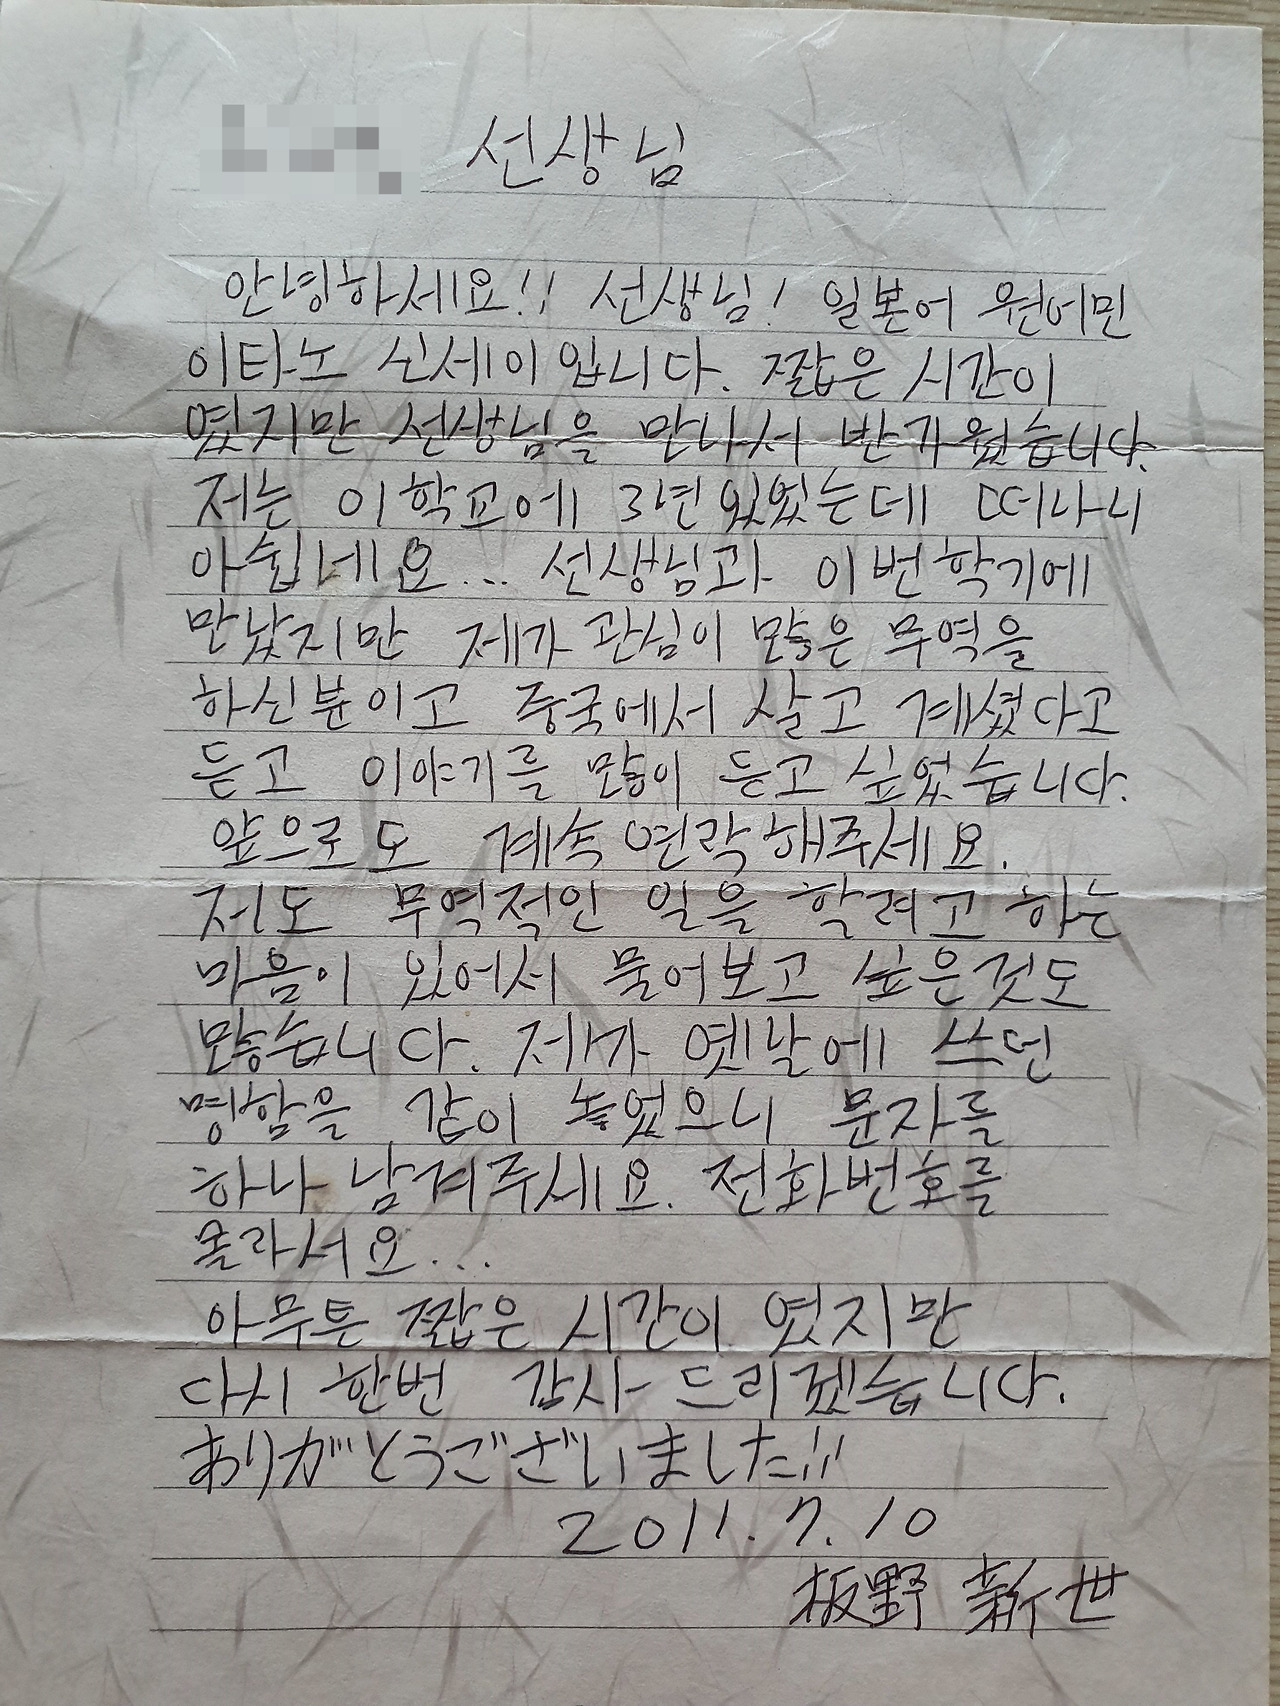 선생님
안녕하세요!! 선생님! 일본어 원어민
이타노 신세이입니다. 짧은 시간이
였지만 선생님을 만나서 반가웠습니다.
저는 이학교에 3년있었는데 떠나니
아쉽네요... 선생님과 이번학기에
만났지만 제가 관심이 많은 무역을
하신분이고 중국에서 살고 계셨다고
듣고 이야기를 많이 듣고 싶었습니다.
앞으로도 계속 연락해주세요.
저도 무역적인 일을 할려고 하는
마음이 있어서 물어보고 싶은것도
많습니다. 제가 옛날에 쓰던
명함을 같이 놓었으니 문자를
하나 남겨주세요. 전화번호를
몰라서요...
아무튼 짧은 시간이 였지만
다시 한번 감사 드리겠습니다.
ありがとうございました!!
2011.7.10
板野 新世